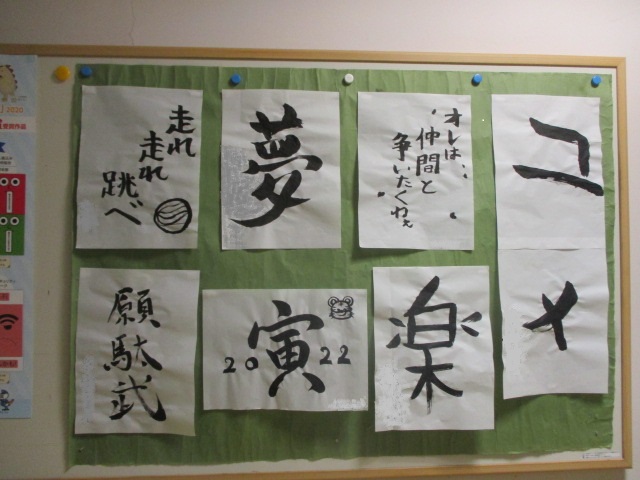 走れ
走れ
跳べ
夢
オレは、
仲間と
争いたくねぇ
コメ
願駄武
寅
2022
楽
2020